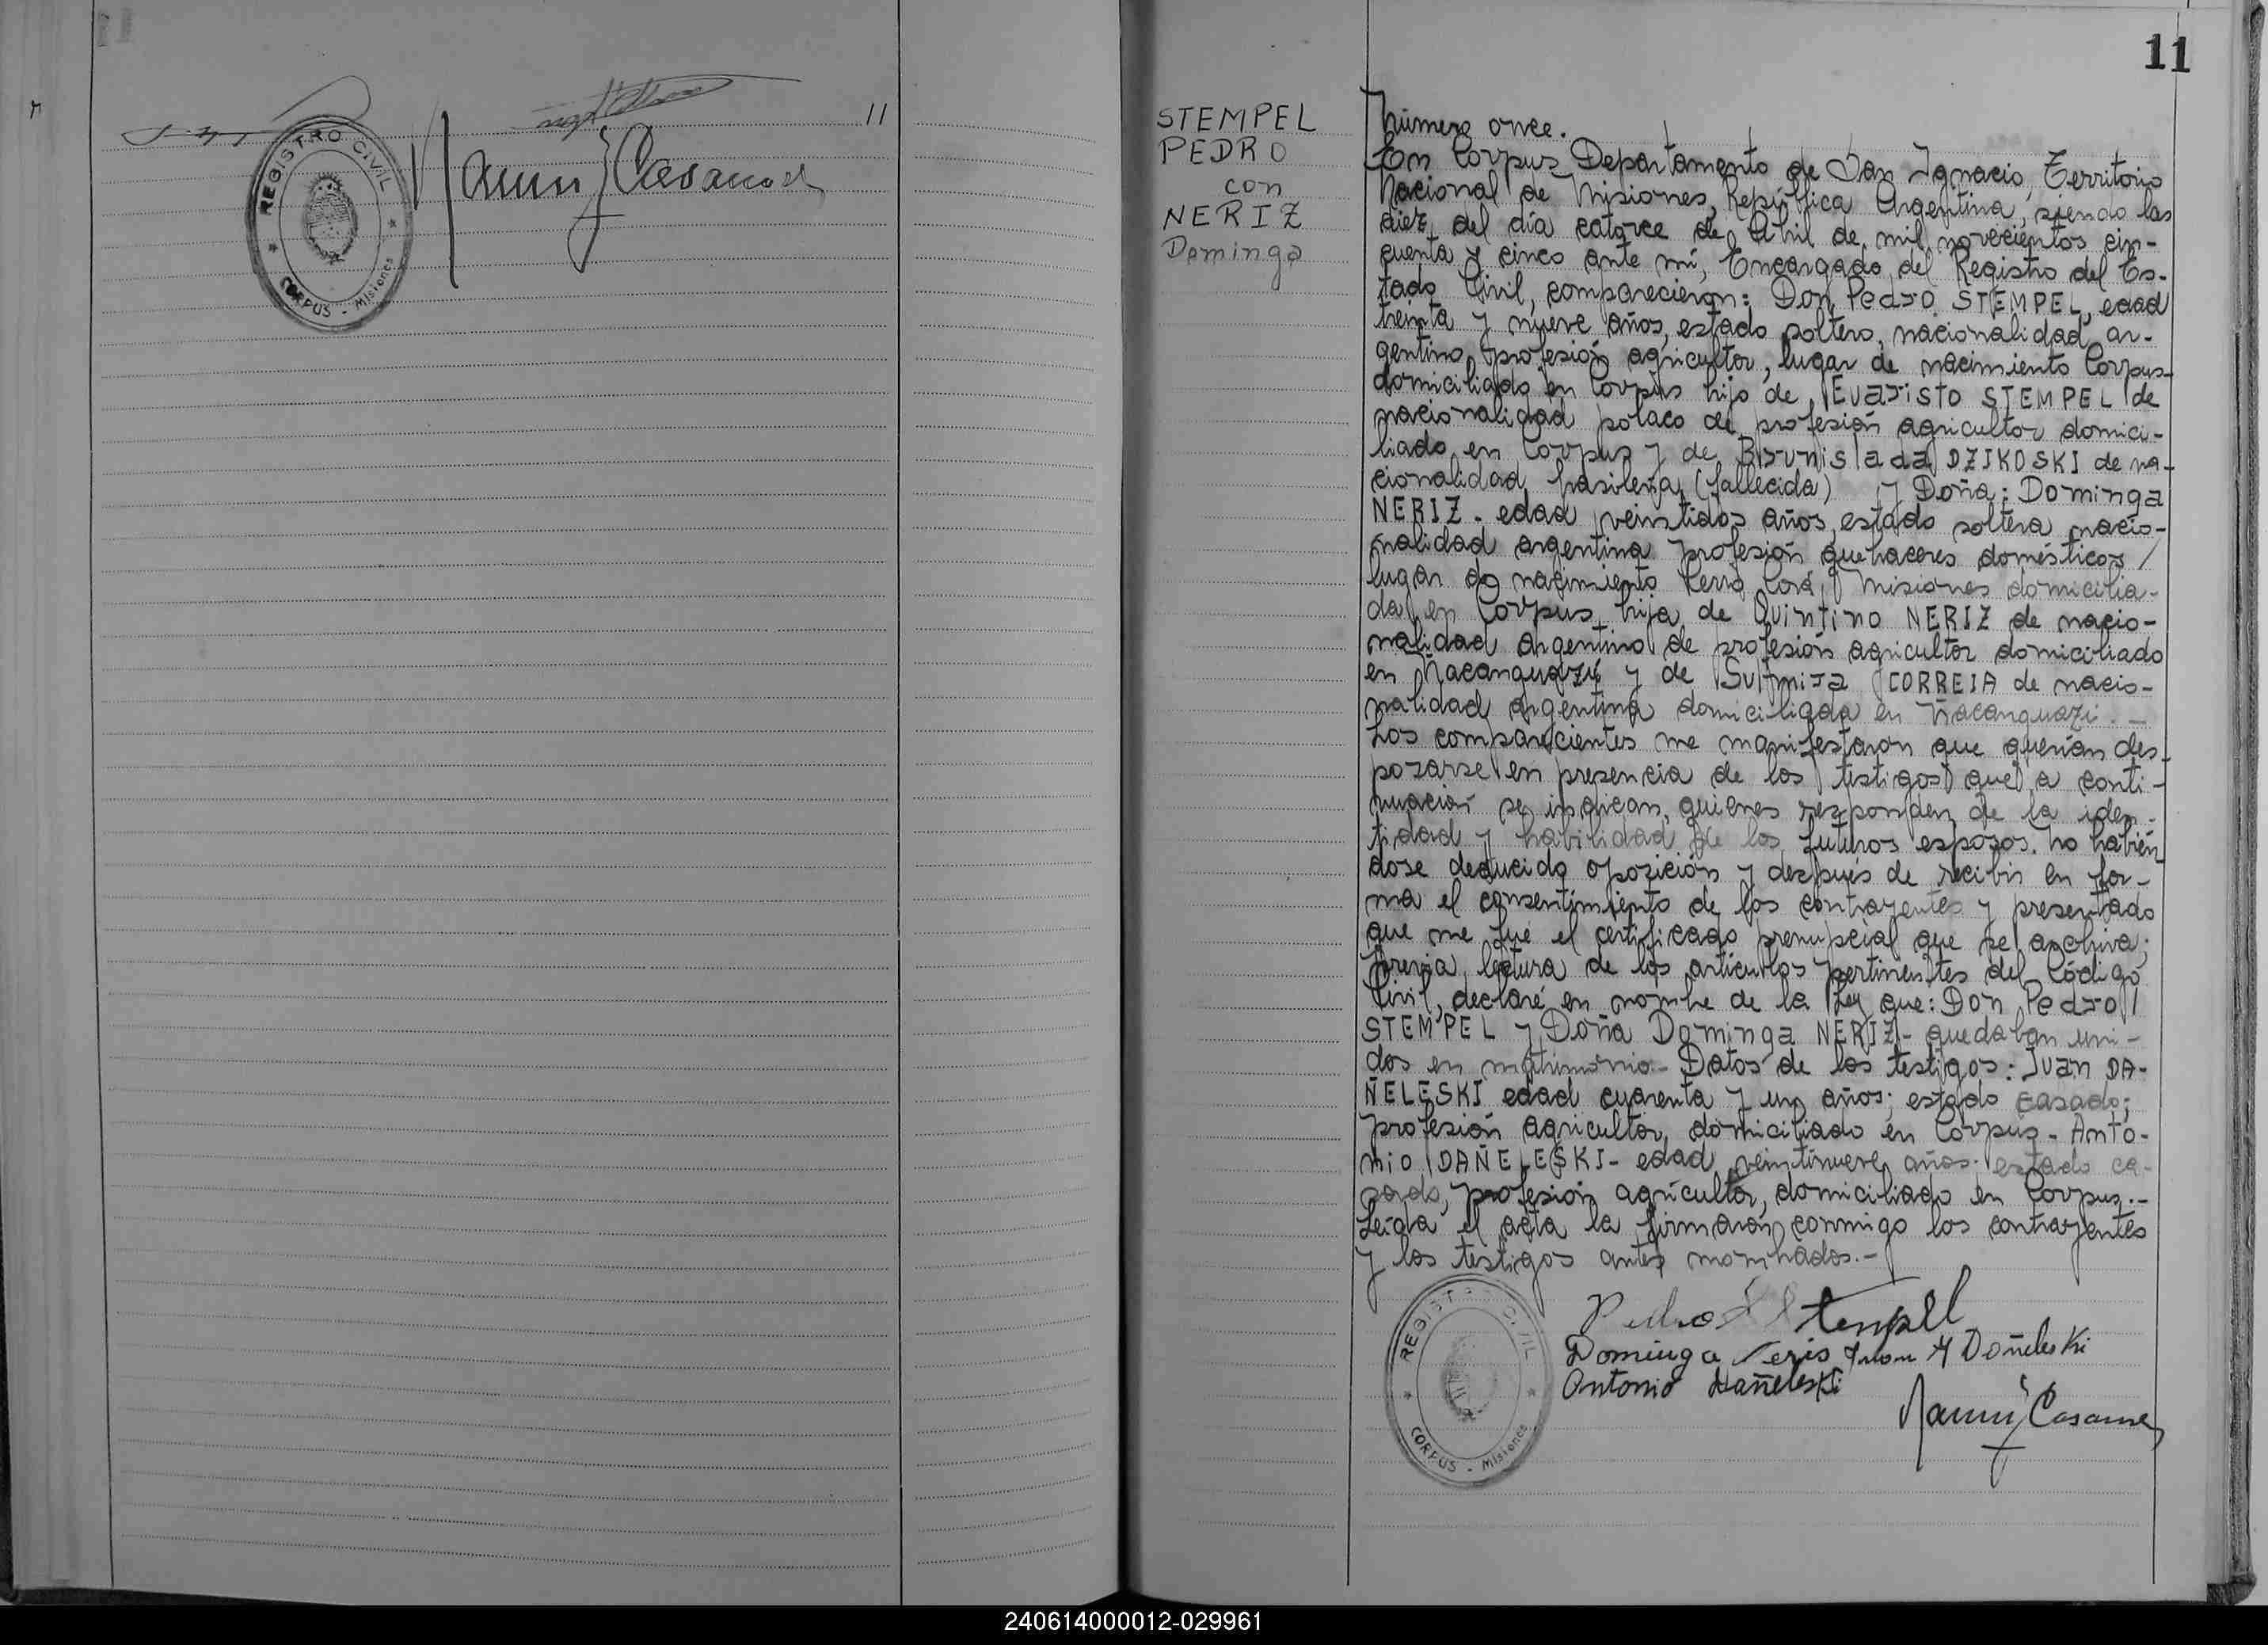 11
REGISTRO CIVIL
CORPUS - Misiones
11
STEMPEL
PEDRO
con
NERIZ
Dominga
Número once.
En Corpus Departamento de San Ignacio, Territorio
Nacional de Misiones, República Argentina, siendo las
diez del día catorce de Abril de mil novecientos cin-
cuenta y cinco ante mí, Encargado del Registro del Es-
tado Civil, comparecieron: Don Pedro STEMPEL, edad
treinta y nueve años, estado soltero, nacionalidad ar-
gentino, profesión agricultor, lugar de nacimiento Corpus-
domiciliado en Corpus hijo de Evaristo STEMPEL de
nacionalidad polaco de profesión agricultor domici-
liado en Corpus y de Brunislada DZIKOSKI de na-
cionalidad brasileña (fallecida) y Doña: Dominga
NERIZ - edad veintidos años, estado soltera nacio-
nalidad argentina profesión quehaceres domésticos /
lugar de nacimiento Cerro Corá, Misiones domicilia-
da en Corpus hija de Quintino NERIZ de nacio-
nalidad argentino de profesión agricultor domiciliado
en Ñacanguazú y de CORREIA de nacio-
nalidad argentina domiciliada en Ñacanguazú. -
Los comparecientes me manifestaron que querían des-
posarse en presencia de los testigos que a conti-
nuación se indican, quienes responden de la iden-
tidad y habilidad de los futuros esposos. No habién
dose deducido oposición y después de recibir en for-
ma el consentimiento de los contrayentes y presentado
que me fué el certificado prenupcial que se archiva;
previa lectura de los artículos pertinentes del Código
Civil, declaré en nombre de la Ley que: Don Pedro /
STEMPEL y Doña Dominga NERIZ - quedaban uni-
dos en matrimonio.- Datos de los testigos: Juan DA-
ÑELESKI edad cuarenta y un años; estado casado;
profesión agricultor, domiciliado en Corpus - Anto-
nio DAÑELESKI - edad veintinueve años; estado ca-
sado, profesión agricultor, domiciliado en Corpus.-
Leída el acta la firmaron conmigo los contrayentes
y los testigos antes nombrados.-
REGISTRO CIVIL
CORPUS - Misiones
Pedro Stempel
Dominga Neris Juan Dañeleski
Antonio Dañeleski
240614000012-029961